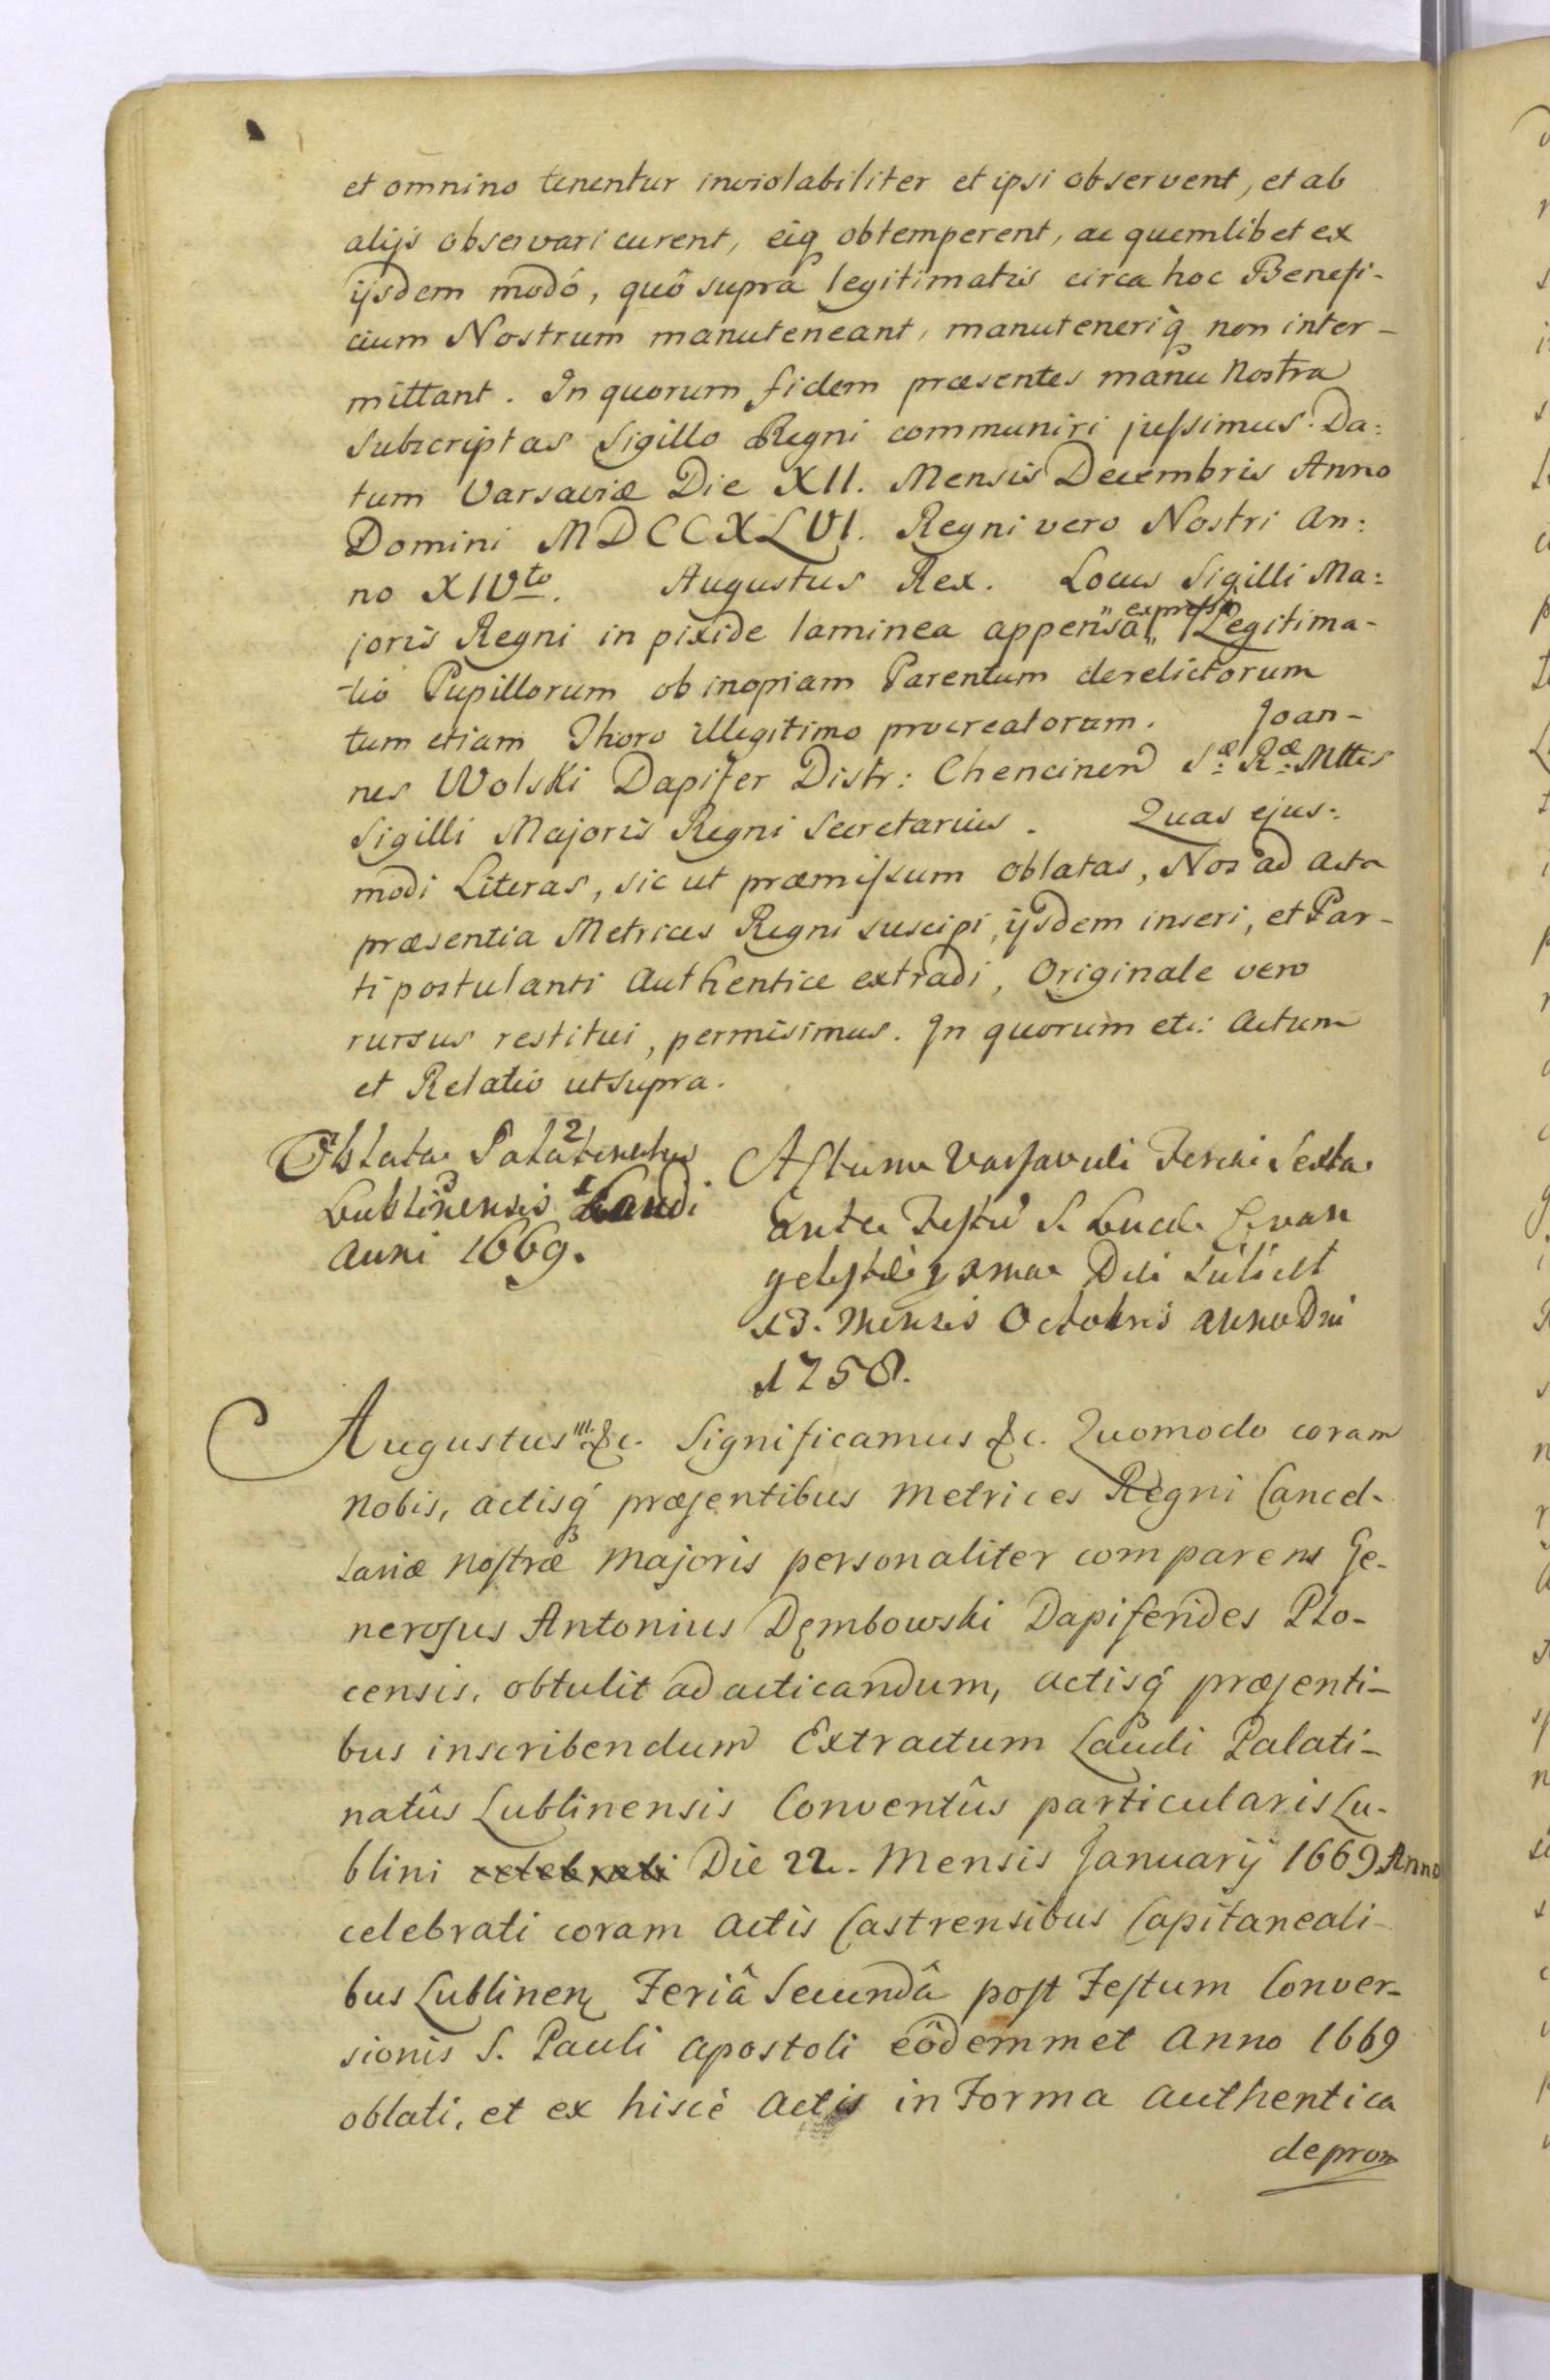 et omnino tenentur inviolabiliter et ipsi observent, et ab
alijs observari curent, eiq obtemperent, ac quemlibet ex
ijsdem modó, quô suprá legitimatis circa hoc Benefi-
cium Nostrum manuteneant, manuteneriq non inter-
mittant. In quorum fidem præsentes manu Nostra
subscriptas Sigillo Regni communiri jussimus. Da:
tum Varsaviæ Die XII. Mensis Decembris Anno
Domini MDCCXLVI. Regni vero Nostri An:
no XIVto. Augustus Rex. Locus Sigilli Ma:
expressa
joris Regni in pixide laminea appensa Legitima-
tio Pupillorum ob inopiam Parentum derelictorum
tum etiam Thoro illegitimo procreatorum. Joan-
nes Wolski Dapifer Distr: Chencinen Sæ: Ræ: Mttis
Sigilli Majoris Regni Secretarius. Quas ejus:
modi Literas, sic ut præmissum oblatas, Nos ad acta
præsentia Metrices Regni suscipi, ijsdem inseri, et Par-
ti postulanti authentice extradi, Originale vero
rursus restitui, permisimus. In quorum etc: actum
et Relatio ut supra.
Oblata Palatinatus
2
Lublinensis Laudi
3 1
anni 1669.
Actum Varsaviæ Feria Sexta
ante Festu S. Lucæ Evan
gelistæ Die
13. Mensis Octobris anno Dni
1758.
Augustus III. &c. Significamus &c. Quomodo coram
nobis, actisq præsentibus Metrices Regni Cancel-
lariæ Nostræ Majoris personaliter comparens Ge-
nerosus Antonius Dęmbowski Dapiferides Plo-
censis, obtulit ad acticandum, actisq præsenti-
bus inscribendum Extractum Laudi Palati-
natûs Lublinensis Conventûs particularis Lu-
blini celebrati Die 22. Mensis January 1669 Anno
celebrati coram actis Castrensibus Capitaneali-
bus Lublinen Feriâ Secundâ post Festum Conver-
sionis S. Pauli Apostoli eôdemmet Anno 1669
oblati, et ex hiscè actis in Forma authentica
deprom